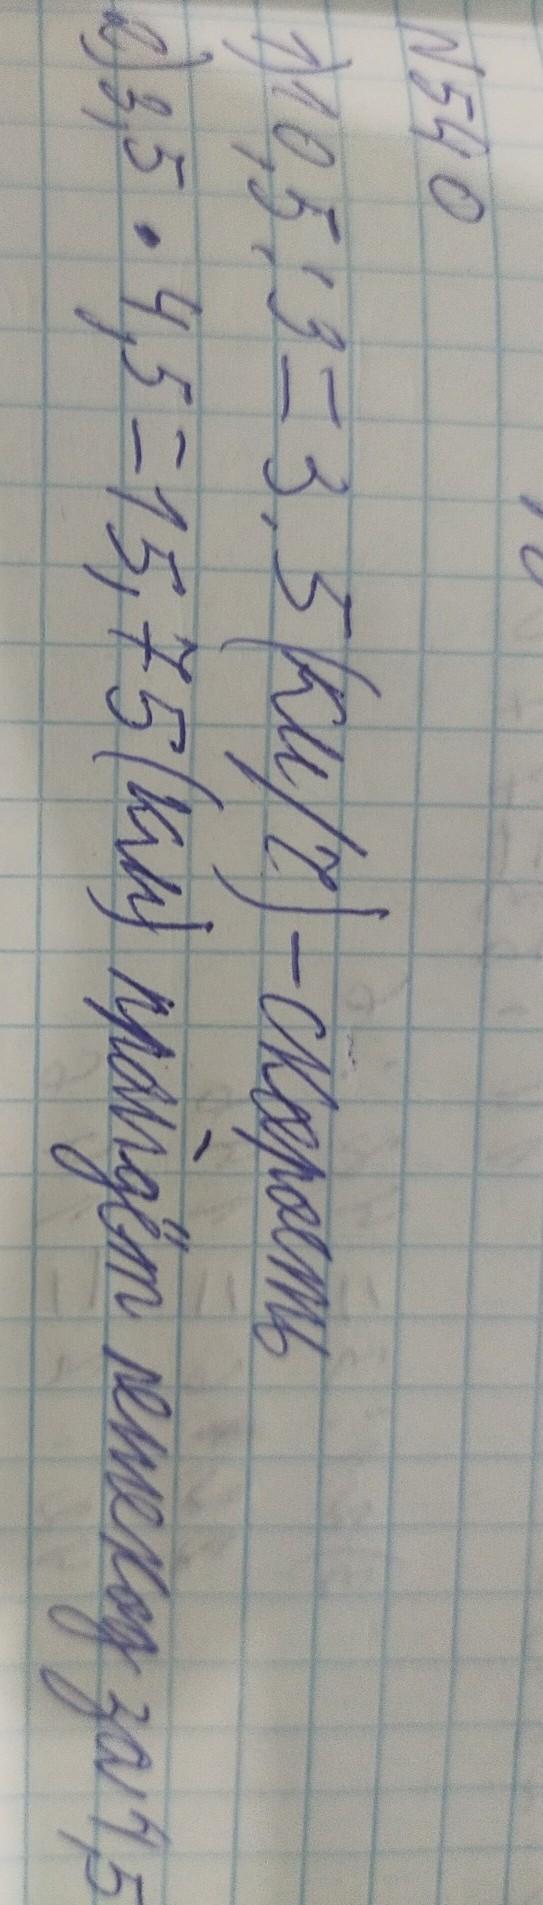 N540
1) 10,5 : 3 = 3,5 (км/ч) - скорость
2) 3,5 • 4,5 = 15,75 (км) пройдёт пешеход за 1,5